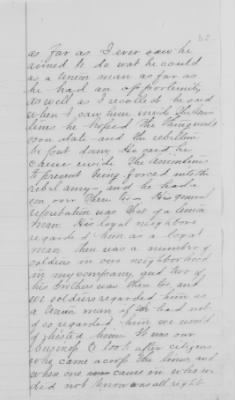 32
as far as I ever saw he
aimed to do wat he could
as a union man as far as
he had an opportunity
as well as I recollect he said
when I saw him inside
lines he hoped the
soon take and the rebellion
be put down He said he
came inside the lines
to prevent being forced into the
rebel army and he had a
son over there too His general
reputation was that of a union
man His loyal neighbors
regarded him as a loyal
man there was a number of
soldiers in our neighborhood
in my company, and two of
his brothers was there too, and
we soldiers regarded him as
a union man if he had not
of so regarded him we would
of him It was our
business to look after citizens
who came across the lines, and
when one came in who we
did not know was all right